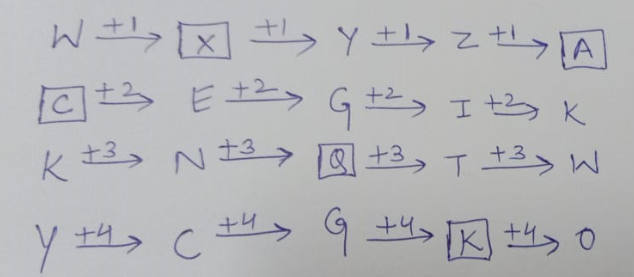 W +1→ X +1→ Y +1→ Z +1→ A
C +2→ E +2→ G +2→ I +2→ K
K +3→ N +3→ Q +3→ T +3→ W
Y +4→ C +4→ G +4→ K +4→ O